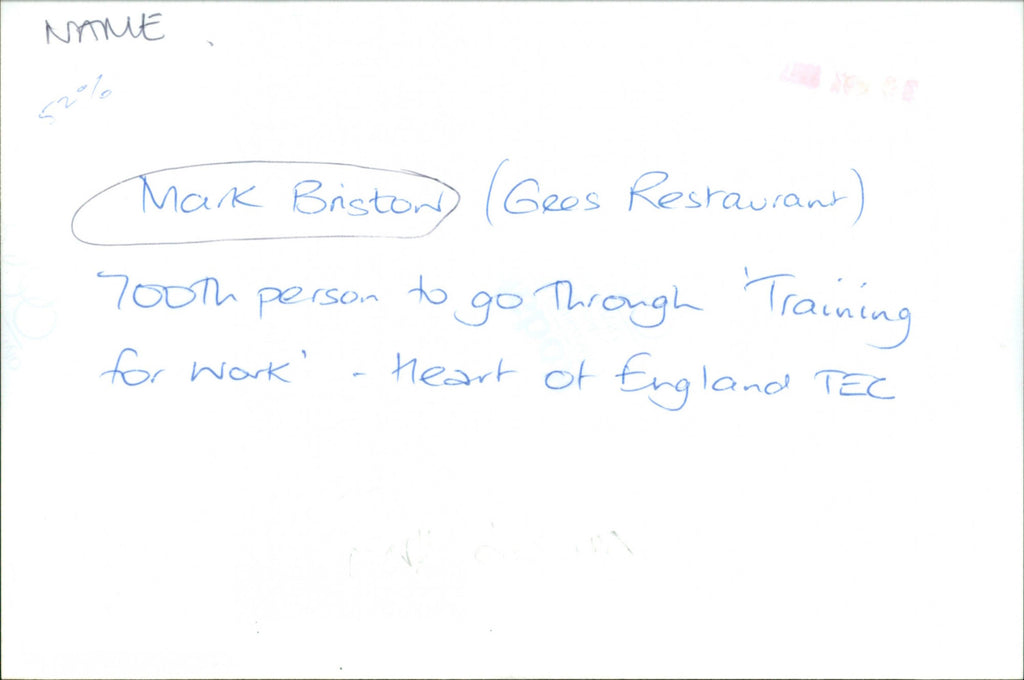 NAME
52%
Mark Bristow (Gees Restaurant)
700th person to go through 'Training
for Work' - Heart of England TEC